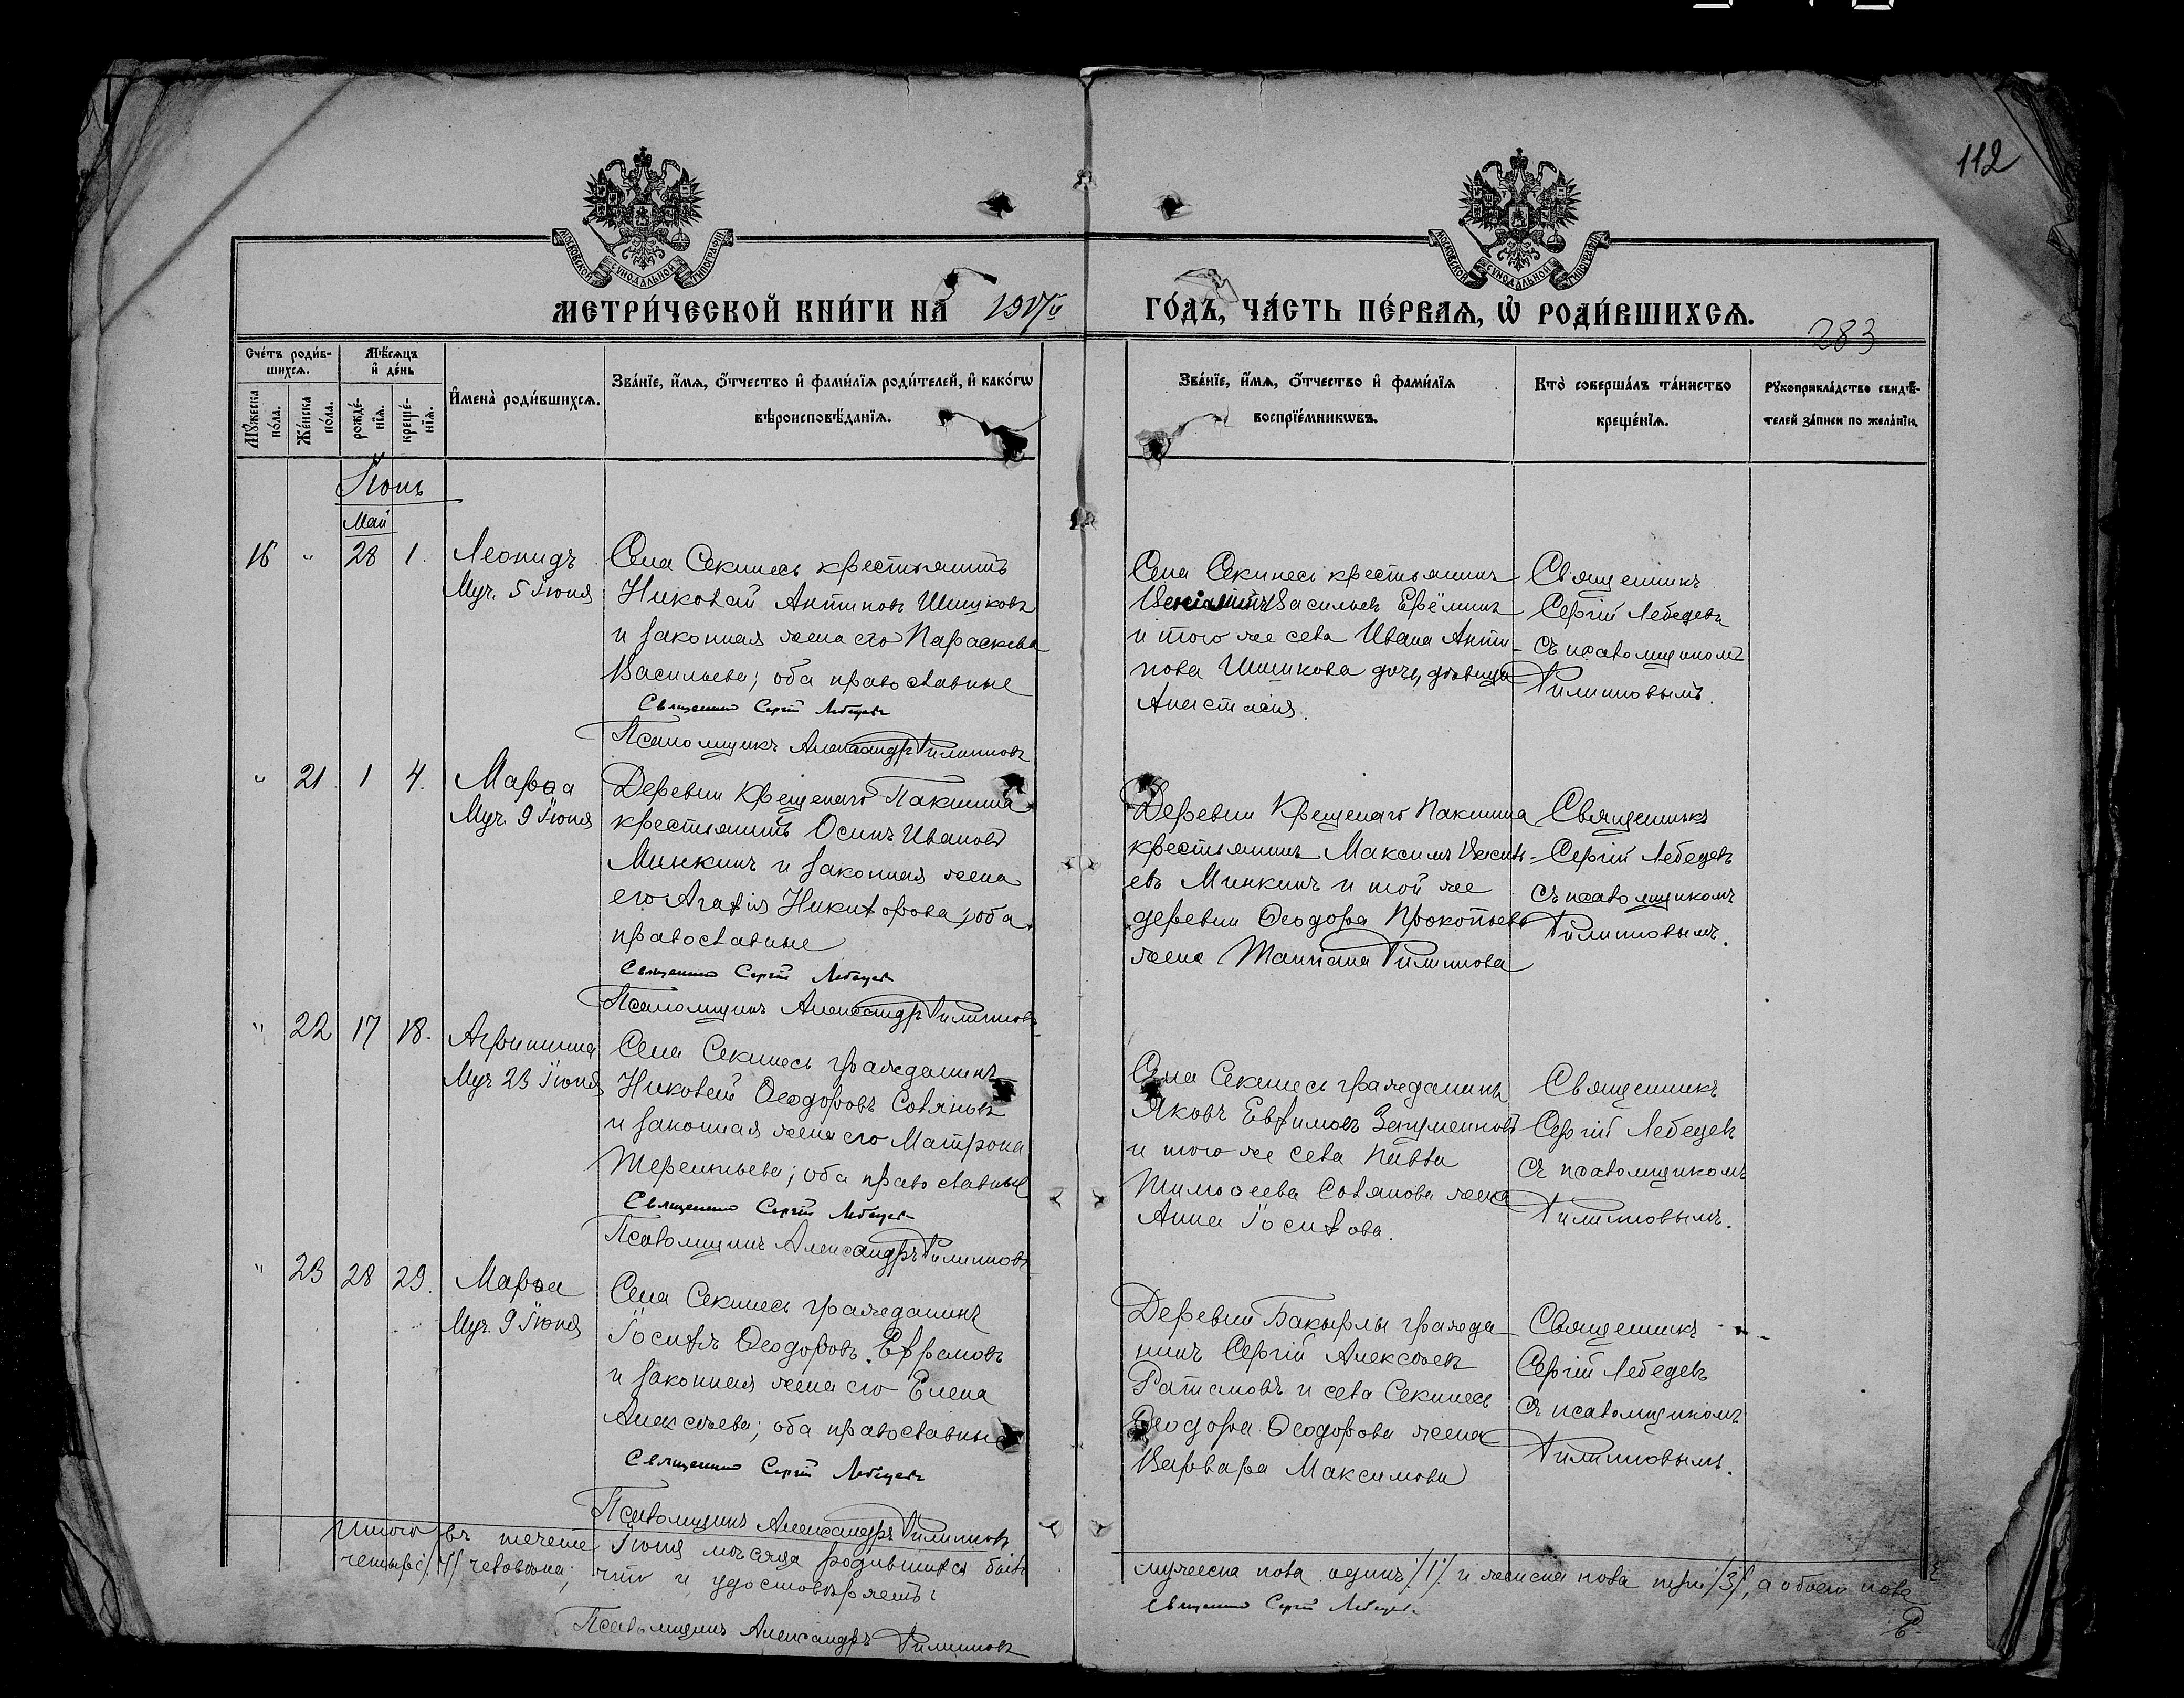 112
МОСКОВСКОЙ СѴНОДАЛЬНОЙ ТИПОГРАФІИ
МОСКОВСКОЙ СѴНОДАЛЬНОЙ ТИПОГРАФІИ
МЕТРИ́ЧЕСКОЙ КНИ́ГИ НА 1917й ГО́ДЪ, ЧА́СТЬ ПЕ́РВАѦ, Ѡ҆ РОДИ́ВШИХСѦ.
283
Сче́тъ роди́в-
шихсѧ.
Мꙋжеска по́ла.
Же́нска по́ла.
Мѣ́сѧцъ
и҆ де́нь
рожде́-
нїѧ.
креще́-
нїѧ.
И҆мена̀ роди́вшихсѧ.
Зва́нїе, и҆́мѧ, ѻ҆́тчество и҆ фами́лїѧ роди́телей, и҆ како́гѡ
вѣроисповѣ́данїѧ.
Зва́нїе, и҆́мѧ, ѻ҆́тчество и҆ фами́лїѧ
воспрїе́мникѡвъ.
Кто̀ соверша́лъ та́инство
креще́нїѧ.
Рꙋкоприкла́дство свидѣ́-
телей за́писи по жела́нїю.
Іюнь
Май
16 " 28 1.
Леонидъ
Муч. 5 Іюня
Села Секинесь крестьянинъ
Николай Антиповъ Шишковъ
и законная жена его Параскева
Васильева; оба православные
Священник Сергій Лебедевъ
Псаломщикъ Александръ Филипповъ
Села Секинесь крестьянинъ
Васильевъ Ерёминъ
и того же села Ивана Анти-
пова Шишкова дочь, девица
Анастасія.
Священникъ
Сергій Лебедевъ
съ псаломщикомъ
Филипповымъ.
" 21 1 4.
Марѳа
Муч. 9 Іюня
Деревни Крещенаго Пакшина
крестьянинъ Осипъ Ивановъ
Минкинъ и законная жена
его Агафія Никифорова; оба
православные
Священник Сергій Лебедевъ
Псаломщикъ Александръ Филипповъ
Деревни Крещенаго Пакшина
крестьянинъ Максимъ Василь-
евъ Минкинъ и той же
деревни Ѳеодора Прокопьева
жена Татіана Филиппова
Священникъ
Сергій Лебедевъ
съ псаломщикомъ
Филипповымъ.
" 22 17 18.
Агриппина
Муч 23 Іюня
Села Секинесь гражданинъ
Николай Ѳеодоровъ Соляновъ
и законная жена его Матрона
Терентьева; оба православные
Священник Сергій Лебедевъ
Псаломщикъ Александръ Филипповъ
Села Секинесь гражданинъ
Яковъ Евфимовъ
и того же села Павла
Тимоѳеева Солянова жена
Анна Іосифова.
Священникъ
Сергій Лебедевъ
съ псаломщикомъ
Филипповымъ.
" 23 28 29.
Марѳа
Муч. 9 Іюня
Села Секинесь гражданинъ
Іосифъ Ѳеодоровъ Ефремовъ
и законная жена его Елена
Алексѣева; оба православные
Священник Сергій Лебедевъ
Псаломщикъ Александръ Филипповъ
Деревни Бакырлы гражда-
нинъ Сергій Алексѣевъ
Ратановъ и села Секинесь
Ѳеодора Ѳеодорова жена
Варвара Максимова
Священникъ
Сергій Лебедевъ
съ псаломщикомъ
Филипповымъ.
Итого въ течение Іюня мѣсяца родившихся было мужеска пола одинъ /1/ и женска пола три /3/, а обоего пола
четыре /4/ человѣка; что и удостовѣряетъ:
Священник Сергій Лебедевъ
Псаломщикъ Александръ Филипповъ